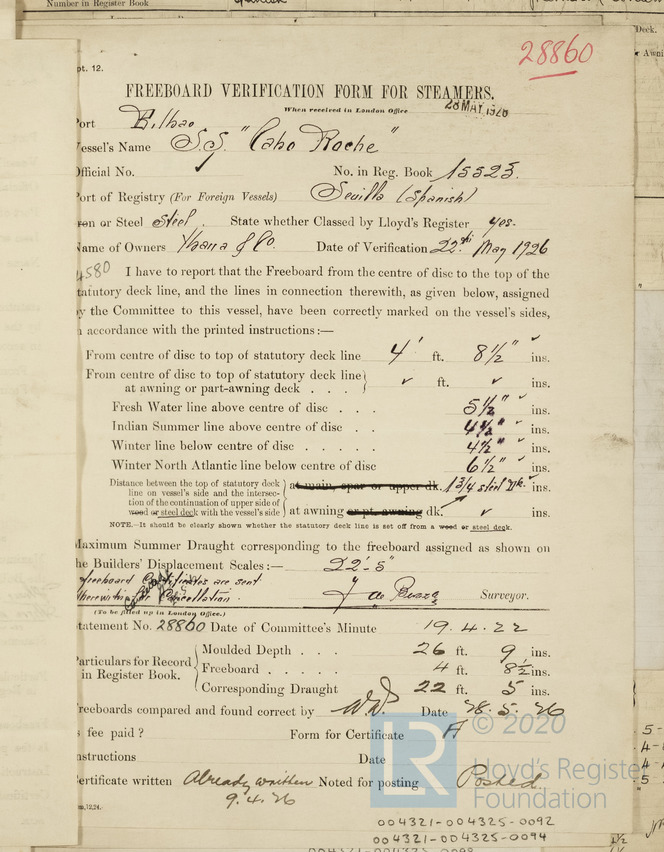 Number in Register Book
28860
pt. 12.
FREEBOARD VERIFICATION FORM FOR STEAMERS.
When received in London Office 28 MAY 1926
Port Bilbao
Vessel's Name S.S. "Cabo Roche"
Official No. No. in Reg. Book 15523.
Port of Registry (For Foreign Vessels) Sevilla (Spanish)
Iron or Steel Steel. State whether Classed by Lloyd's Register yes.
Name of Owners Ybarra & Co. Date of Verification 22nd May 1926
4580 I have to report that the Freeboard from the centre of disc to the top of the
statutory deck line, and the lines in connection therewith, as given below, assigned
by the Committee to this vessel, have been correctly marked on the vessel's sides,
in accordance with the printed instructions:—
From centre of disc to top of statutory deck line 4' ft. 8½" ins.
From centre of disc to top of statutory deck line
at awning or part-awning deck . . . ✓ ft. ✓ ins.
Fresh Water line above centre of disc . . . 5½" ins.
Indian Summer line above centre of disc . . 4½" ins.
Winter line below centre of disc . . . . . 4½" ins.
Winter North Atlantic line below centre of disc 6½" ins.
Distance between the top of statutory deck
line on vessel's side and the intersec-
tion of the continuation of upper side of
wood or steel deck with the vessel's side
at main, spar or upper dk. 1 3/4 steel Dk. ins.
at awning or pt. awning dk. ✓ ins.
NOTE.—It should be clearly shown whether the statutory deck line is set off from a wood or steel deck.
Maximum Summer Draught corresponding to the freeboard assigned as shown on
the Builders' Displacement Scales:— 22'-5"
Freeboard Certificates are sent
herewith for Cancellation.
Surveyor.
(To be filled up in London Office.)
Statement No. 28860 Date of Committee's Minute 19.4.22
Particulars for Record
in Register Book.
Moulded Depth . . . 26 ft. 9 ins.
Freeboard . . . . . 4 ft. 8½ ins.
Corresponding Draught 22 ft. 5 ins.
Freeboards compared and found correct by Date 28.5.26
Is fee paid? Form for Certificate A
Instructions Date
Certificate written Already written Noted for posting Posted.
9.4.26
LR © 2020
Lloyd's Register
Foundation
004321-004325-0092
004321-004325-0094